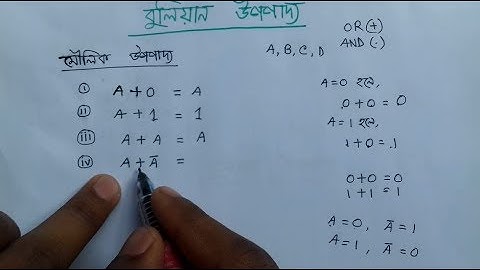 বুলিয়ান উপপাদ্য
OR (+)
AND (.)
A, B, C, D
মৌলিক উপপাদ্য
i A + 0 = A
ii A + 1 = 1
iii A + A = A
iv A + Ā =
A = 0 হলে,
0 + 0 = 0
A = 1 হলে,
1 + 0 = 1
0 + 0 = 0
1 + 1 = 1
A = 0, Ā = 1
A = 1, Ā = 0